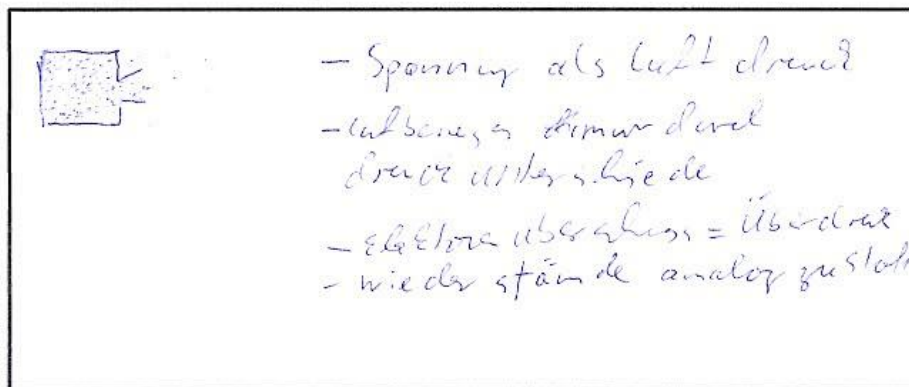 - Spannung als Luft druck
- Luftbewegen nur durch
druck unterschiede
- Elektronen überschuss = Überdruck
- wieder stände analog zu Stoff